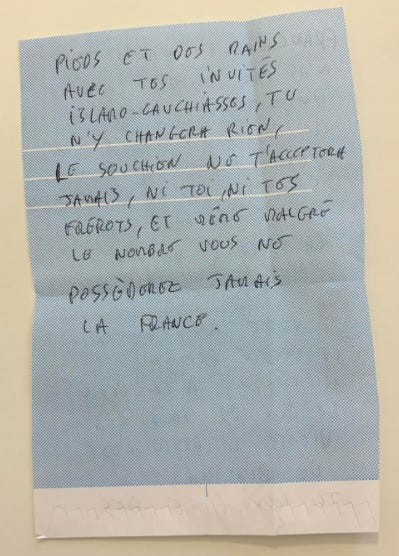 PIEDS ET DES MAINS
AVEC TES INVITÉS
ISLAMO-GAUCHIASSES, TU
N'Y CHANGERA RIEN,
LE SOUCHIEN NE T'ACCEPTERA
JAMAIS, NI TOI, NI TES
FRÉROTS, ET MÊME MALGRÉ
LE NOMBRE VOUS NE
POSSÈDEREZ JAMAIS
LA FRANCE.